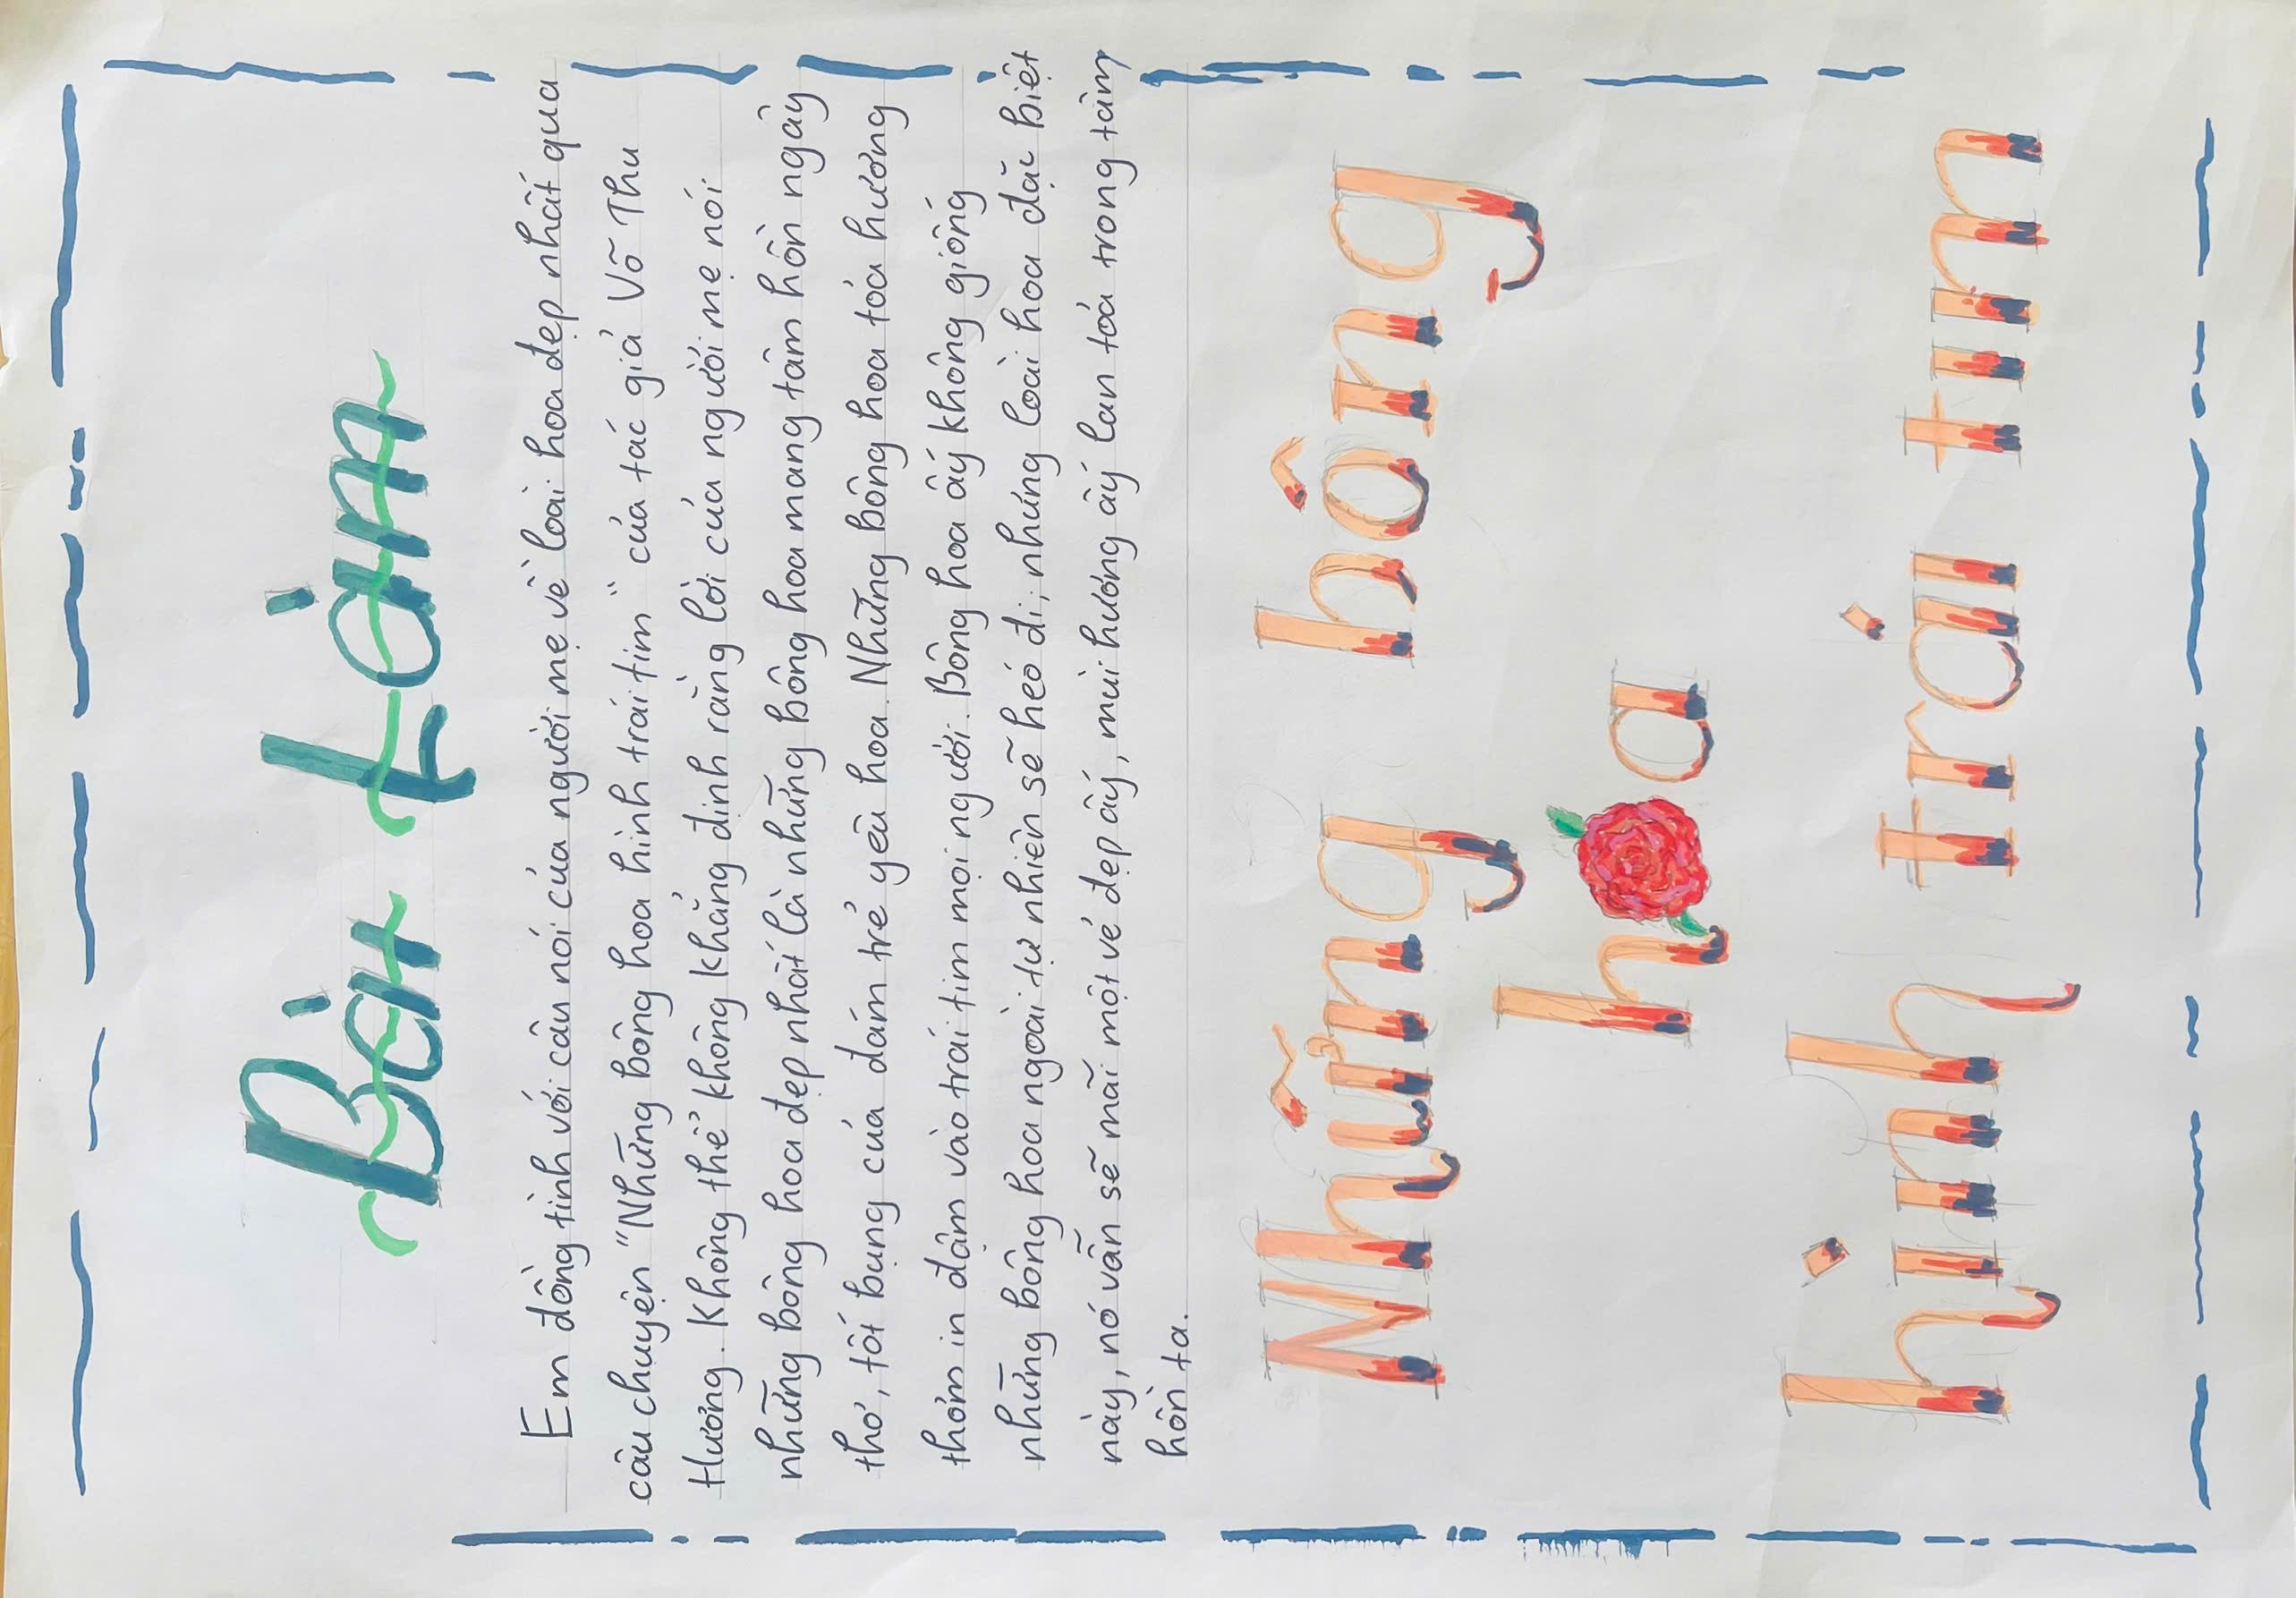 Bài Làm
Em đồng tình với câu nói của người mẹ về loài hoa đẹp nhất qua
câu chuyện "Những bông hoa hình trái tim" của tác giả Võ Thu
Hương. Không thể không khẳng định rằng lời của người mẹ nói
những bông hoa đẹp nhất là những bông hoa mang tâm hồn ngây
thơ, tốt bụng của đám trẻ yêu hoa. Những bông hoa tỏa hương
thơm in đậm vào trái tim mọi người. Bông hoa ấy không giống
những bông hoa ngoài tự nhiên sẽ héo đi; những loài hoa đặc biệt
này, nó vẫn sẽ mãi một vẻ đẹp ấy, mùi hương ấy lan toả trong tâm
hồn ta.
Những bông
hoa
hình trái tim